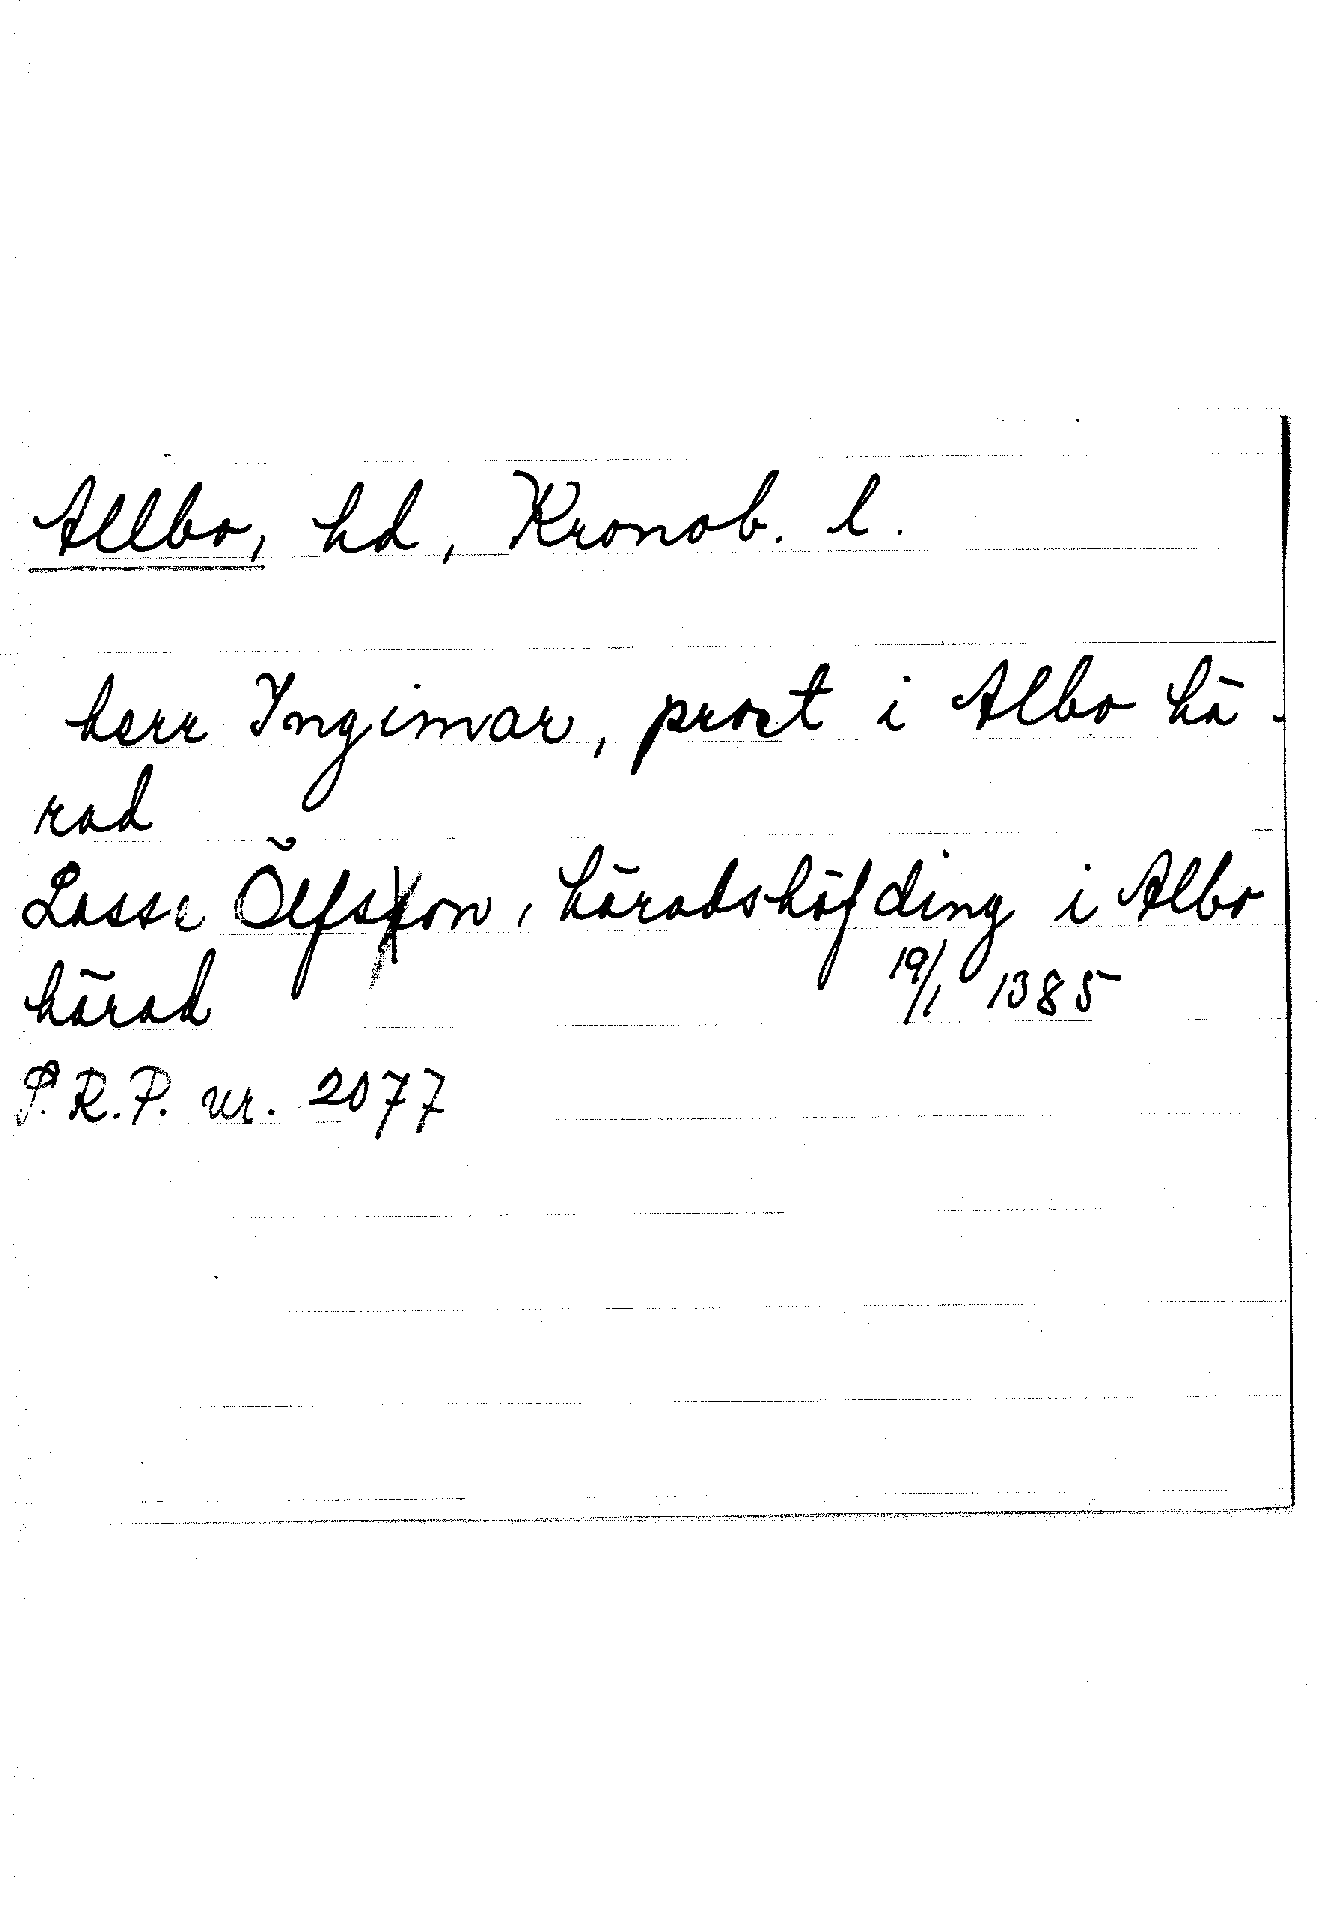 Allbo, hd, Kronob. l.
herr Ingimar, prost i Albo hä-
rad
Lasse Ölfsson, häradshöfding i Albo
härad 19/1 1385
P.R.P. nr. 2077